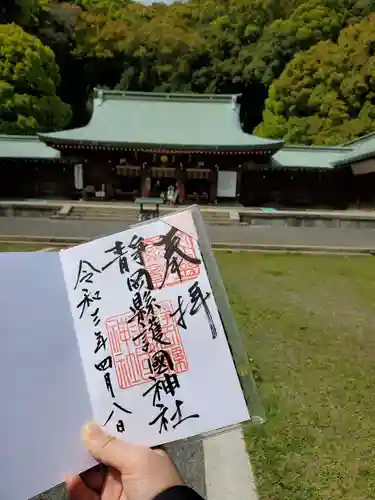 奉拝
静岡縣護國神社
令和三年四月八日